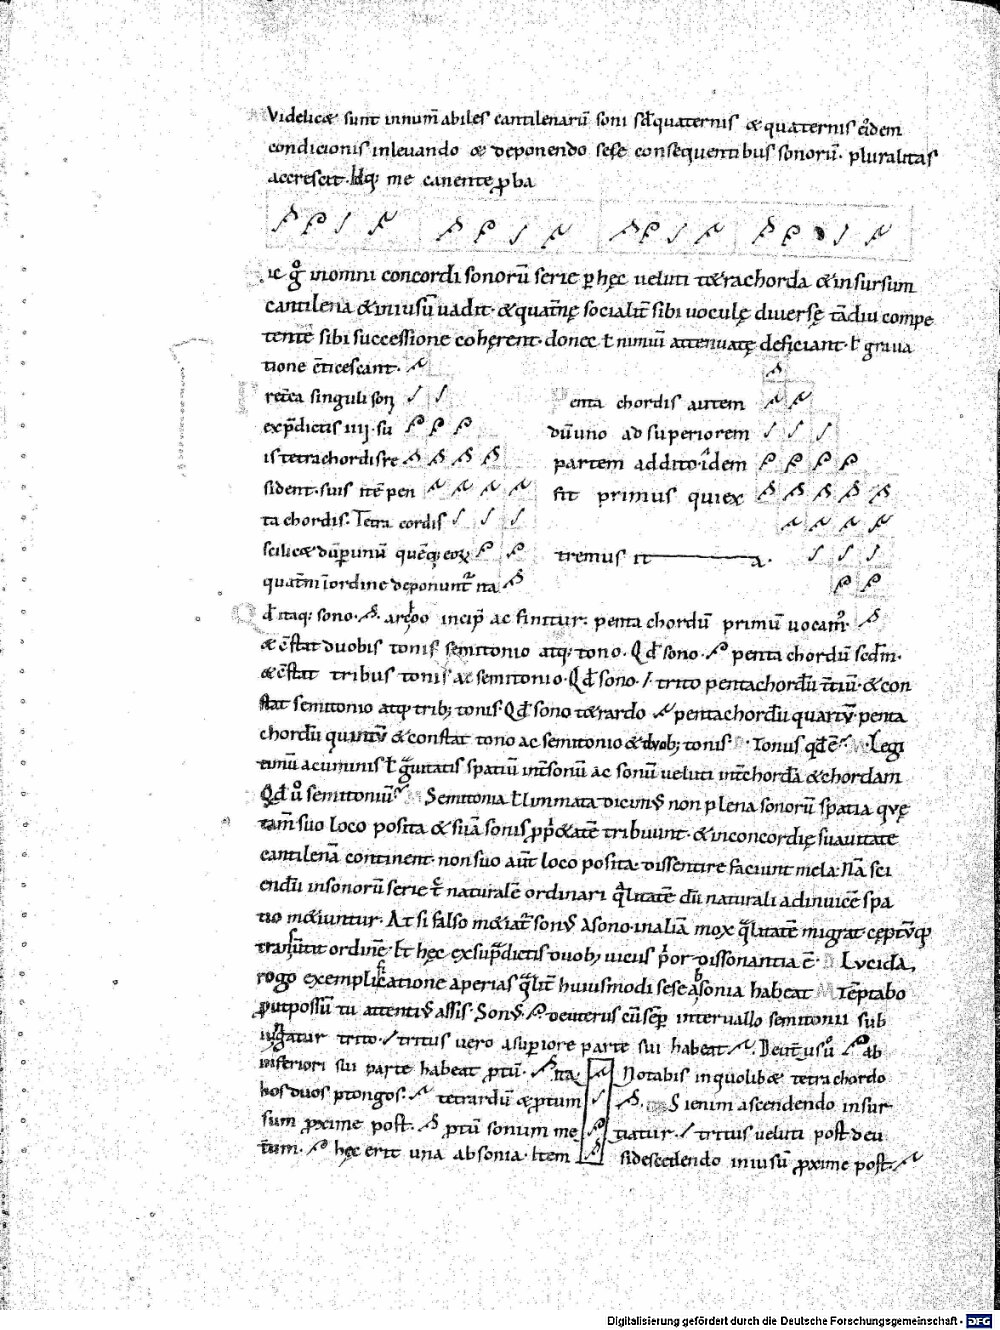 Videlicæ sunt innum̄abiles cantilenarū soni sed quaternis & quaternis eidem
condicionis inleuando & deponendo sese consequentibus sonorū. pluralitas
accrescit. Idq; me canente ꝓba
ic g° inomni concordi sonorū serie p hęc ueluti tetrachorda & insursum
cantilena & iniusū uadit. & quatn̄ę socialit̄ sibi uoculę diuersę tādiu compe
tente sibi successione cohęrent. donec ł nimiū attenuatę deficiant. ł graua
tione c̄ticescant.
singuli son
exp̄dictis iiij. su
is tetrachordis re
sident. suis itē pen
ta chordis. Tetra cordis
scilicæ dū p unū quēq; eoꝝ
quatn̄i īordine deponunt᷑ ita
enta chordis autem
dū uno ad superiorem
partem addito. idem
fit primus qui ex
tremus it a.
d̄ itaq; sono. archoo incip̄ ac finitur. penta chordū primū uocam᷒.
& c̄stat duobis tonis semitonio atq; tono. Qd̄ sono. penta chordū scd̄m.
& c̄stat tribus tonis ac semitonio. Qd̄ sono. trito pentachordū t̄tiū. & con
stat semitonio atq; trib; tonis. Qd̄ sono tetrardo pentachordū quartū. penta
chordū quintū & constat tono ac semitonio & duob; tonis. Tonus qd̄ ē. Legi
timū acuminis ł g̃uitatis spatiū int̄ sonū ac sonū ueluti int̄ chordā & chordam
Qd̄ uo semitoniū Semitonia ł limmata dicunt᷑ non plena sonorū spatia quę
tam̄ suo loco posita & suā sonis ꝓp̄etatē tribuunt. & inconcordię suauitate
cantilenā continent. non suo aut̄ loco posita. dissentire faciunt mela. Nā sci
endū insonorū serie t̄ naturalē ordinari q̄litatē dū naturali adinuicē spa
tio metiuntur. At si falso metiat᷑ son᷒ asono. inaliā mox q̄litatē migrat ceptūq;
transmutit ordinē. Et hęc exsup̄dictis duob; uicus p̄or dissonantia ē. Lucida,
rogo exemplificatione aperias q̄lit̄ huiusmodi sese absonia habeat Tēptabo
ꝓut possū tu attentius assis. Son᷒. deuterus cū semp̄ interuallo semitonii sub
iungatur trito. tritus uero asuperiore parte sui habeat. Deut̄us uo ab
inferiori sui parte habeat ꝓtū. ita Notabis inquolibæ tetrachordo
hos duos ptongos. tetrardū & ꝓtum Si enim ascendendo insur
sum ꝓxime post. ꝓtū sonum me tiatur. tritus ueluti post deu
t̄um. hęc erit una absonia. Item si descedendo iniusū ꝓxime post.
Digitalisierung gefördert durch die Deutsche Forschungsgemeinschaft - DFG